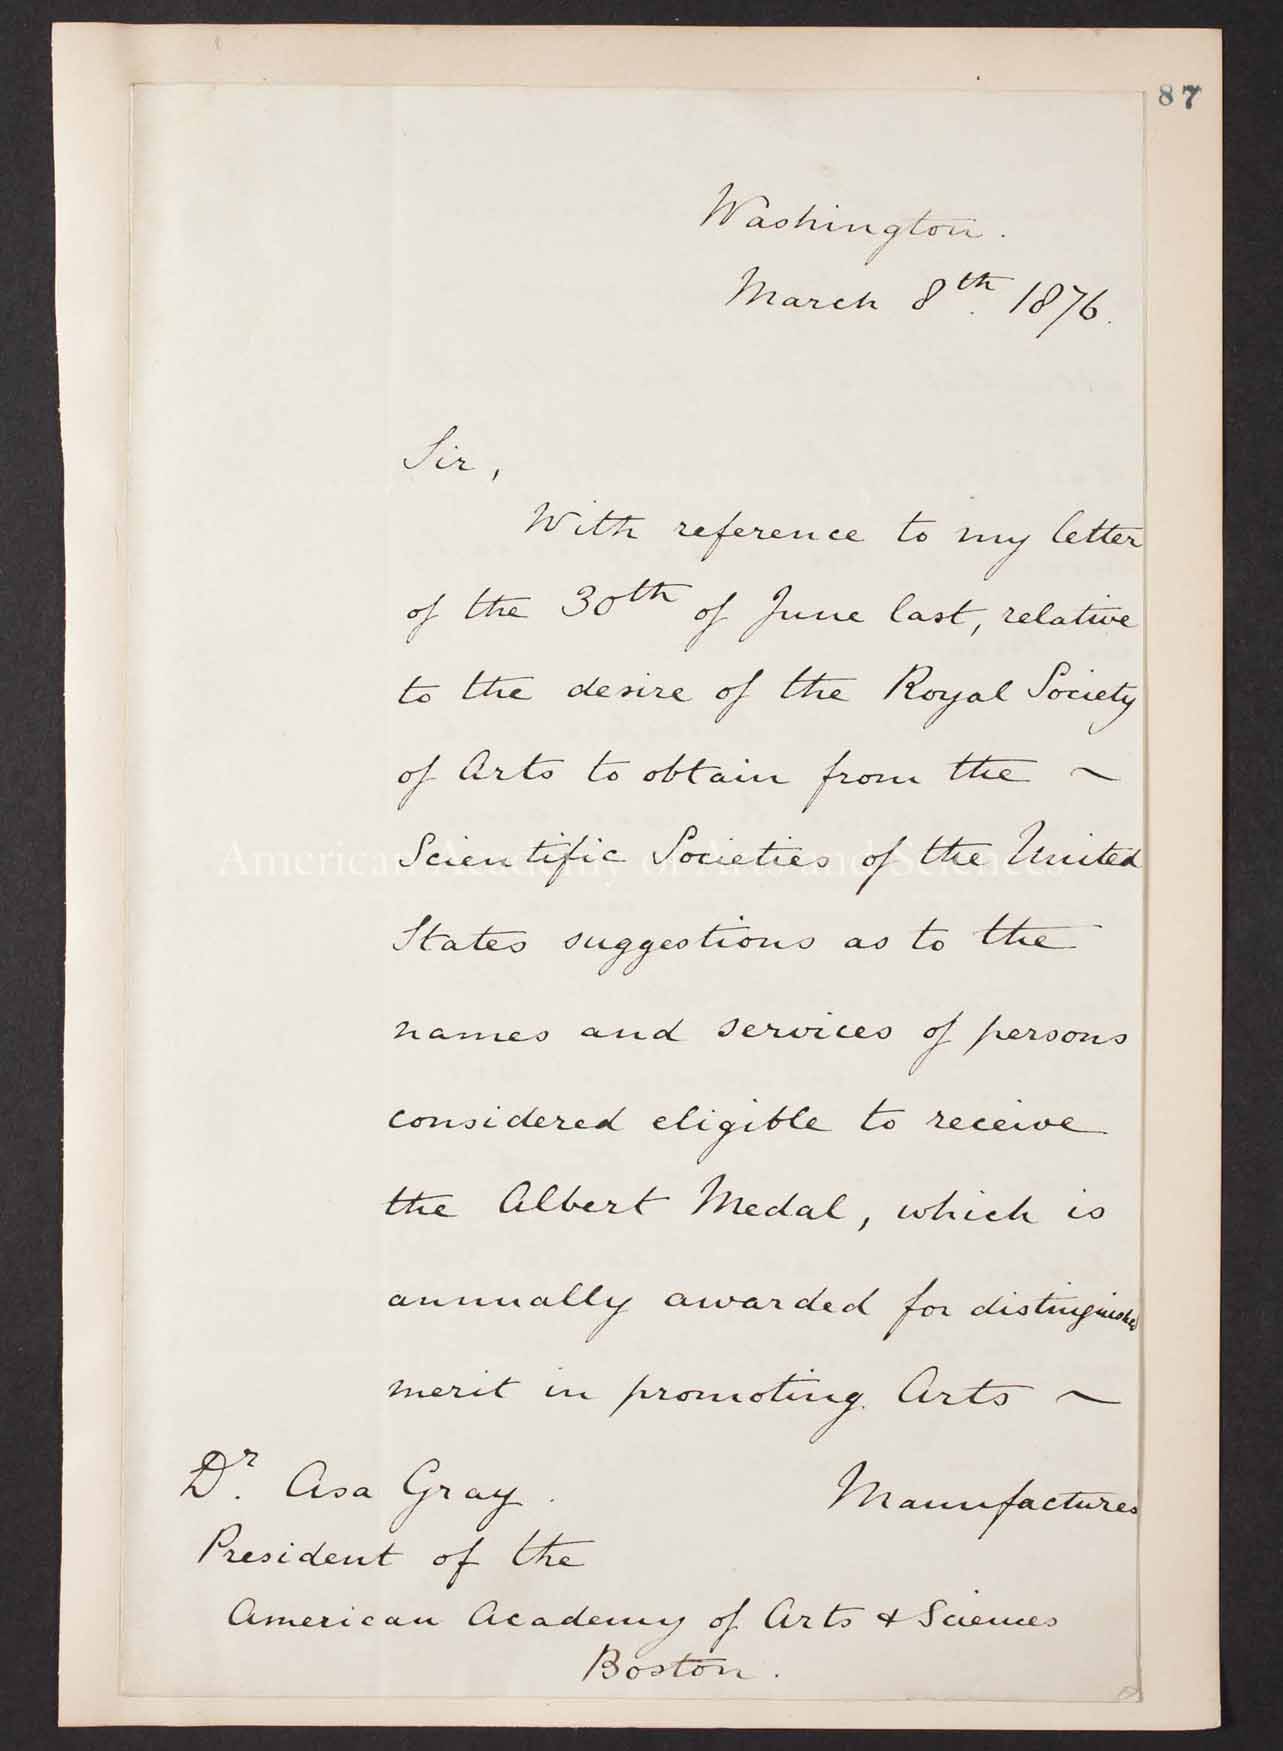 87
Washington.
March 8th. 1876.
Sir,
With reference to my letter
of the 30th of June last, relative
to the desire of the Royal Society
of Arts to obtain from the ~
Scientific Societies of the United
States suggestions as to the
names and services of persons
considered eligible to receive
the Albert Medal, which is
annually awarded for distinguished
merit in promoting Arts ~
Manufactures
Dr. Asa Gray.
President of the
American Academy of Arts & Sciences
Boston.
American Academy of Arts and Sciences